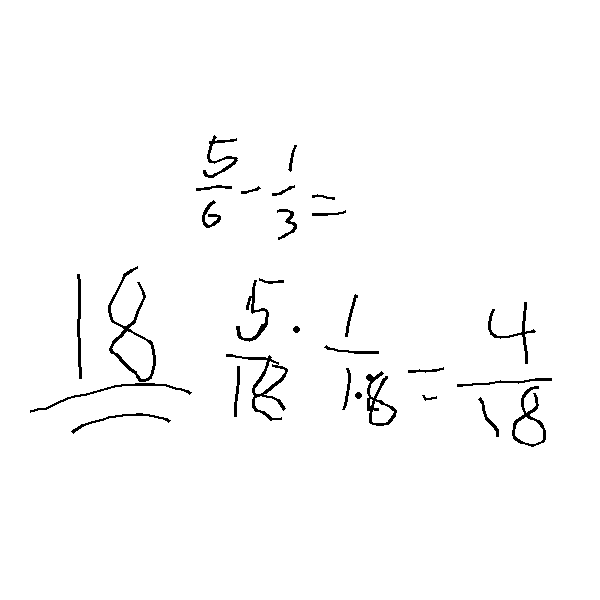 5/6 - 1/3 =
18 5/18 · 1/18 = 4/18